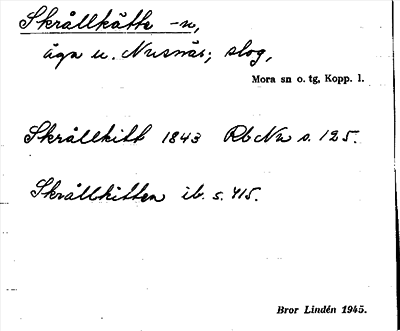 Skrållkätte -n,
äga u. Nusnäs; skog,
Mora sn o. tg, Kopp. l.
Skrållkitt 1843 RbNu s. 125.
Skrållkitten ib. s. 415.
Bror Lindén 1945.